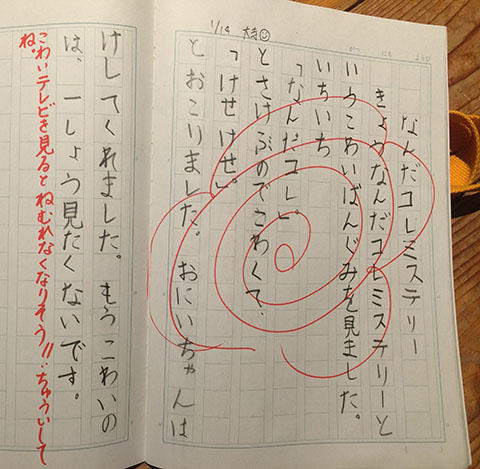 1/19 大き
なんだコレミステリー
きょうなんだコレミステリーと
いうこわいばんぐみを見ました。
いちいち
「なんだコレ」
とさけぶのでこわくて、
「けせけせ」
とおこりました。おにいちゃんは
けしてくれました。もうこわいの
は、一しょう見たくないです。
こわいテレビを見るとねむれなくなりそう!!ちゅういして
ね。